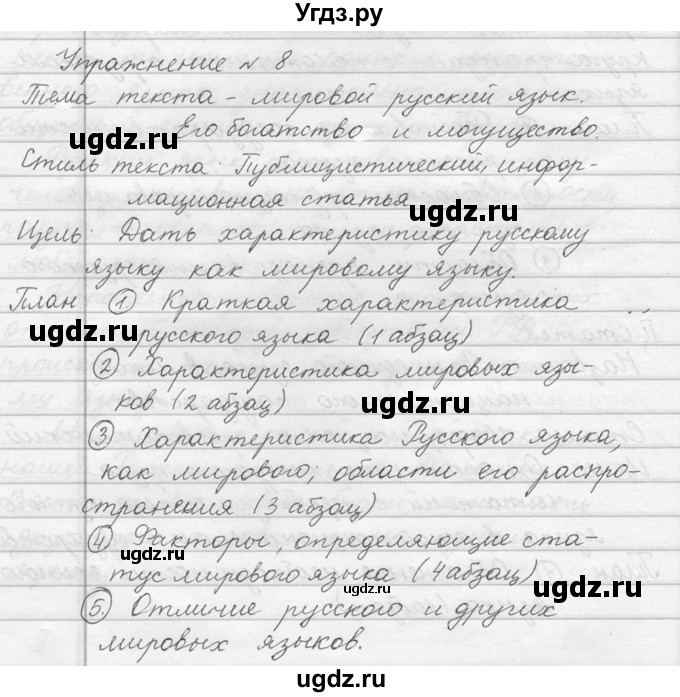 Угдз.ру
Упражнение № 8
Тема текста - мировой русский язык.
Его богатство и могущество.
Стиль текста: Публицистический, инфор-
мационная статья
ugdz.ru
ugdz.ru
Цель: Дать характеристику русскому
языку как мировому языку.
План ① Краткая характеристика
ugdz.ru
русского языка (1 абзац)
② Характеристика мировых язы-
ков (2 абзац)
ugdz.ru
③ Характеристика Русского языка,
как мирового, области его распро-
странения (3 абзац)
④ Факторы, определяющие ста-
ugdz.ru
тус мирового языка (4 абзац)
ugdz.ru
⑤. Отличие русского и других
мировых языков.
ugdz.ru
ugdz.ru